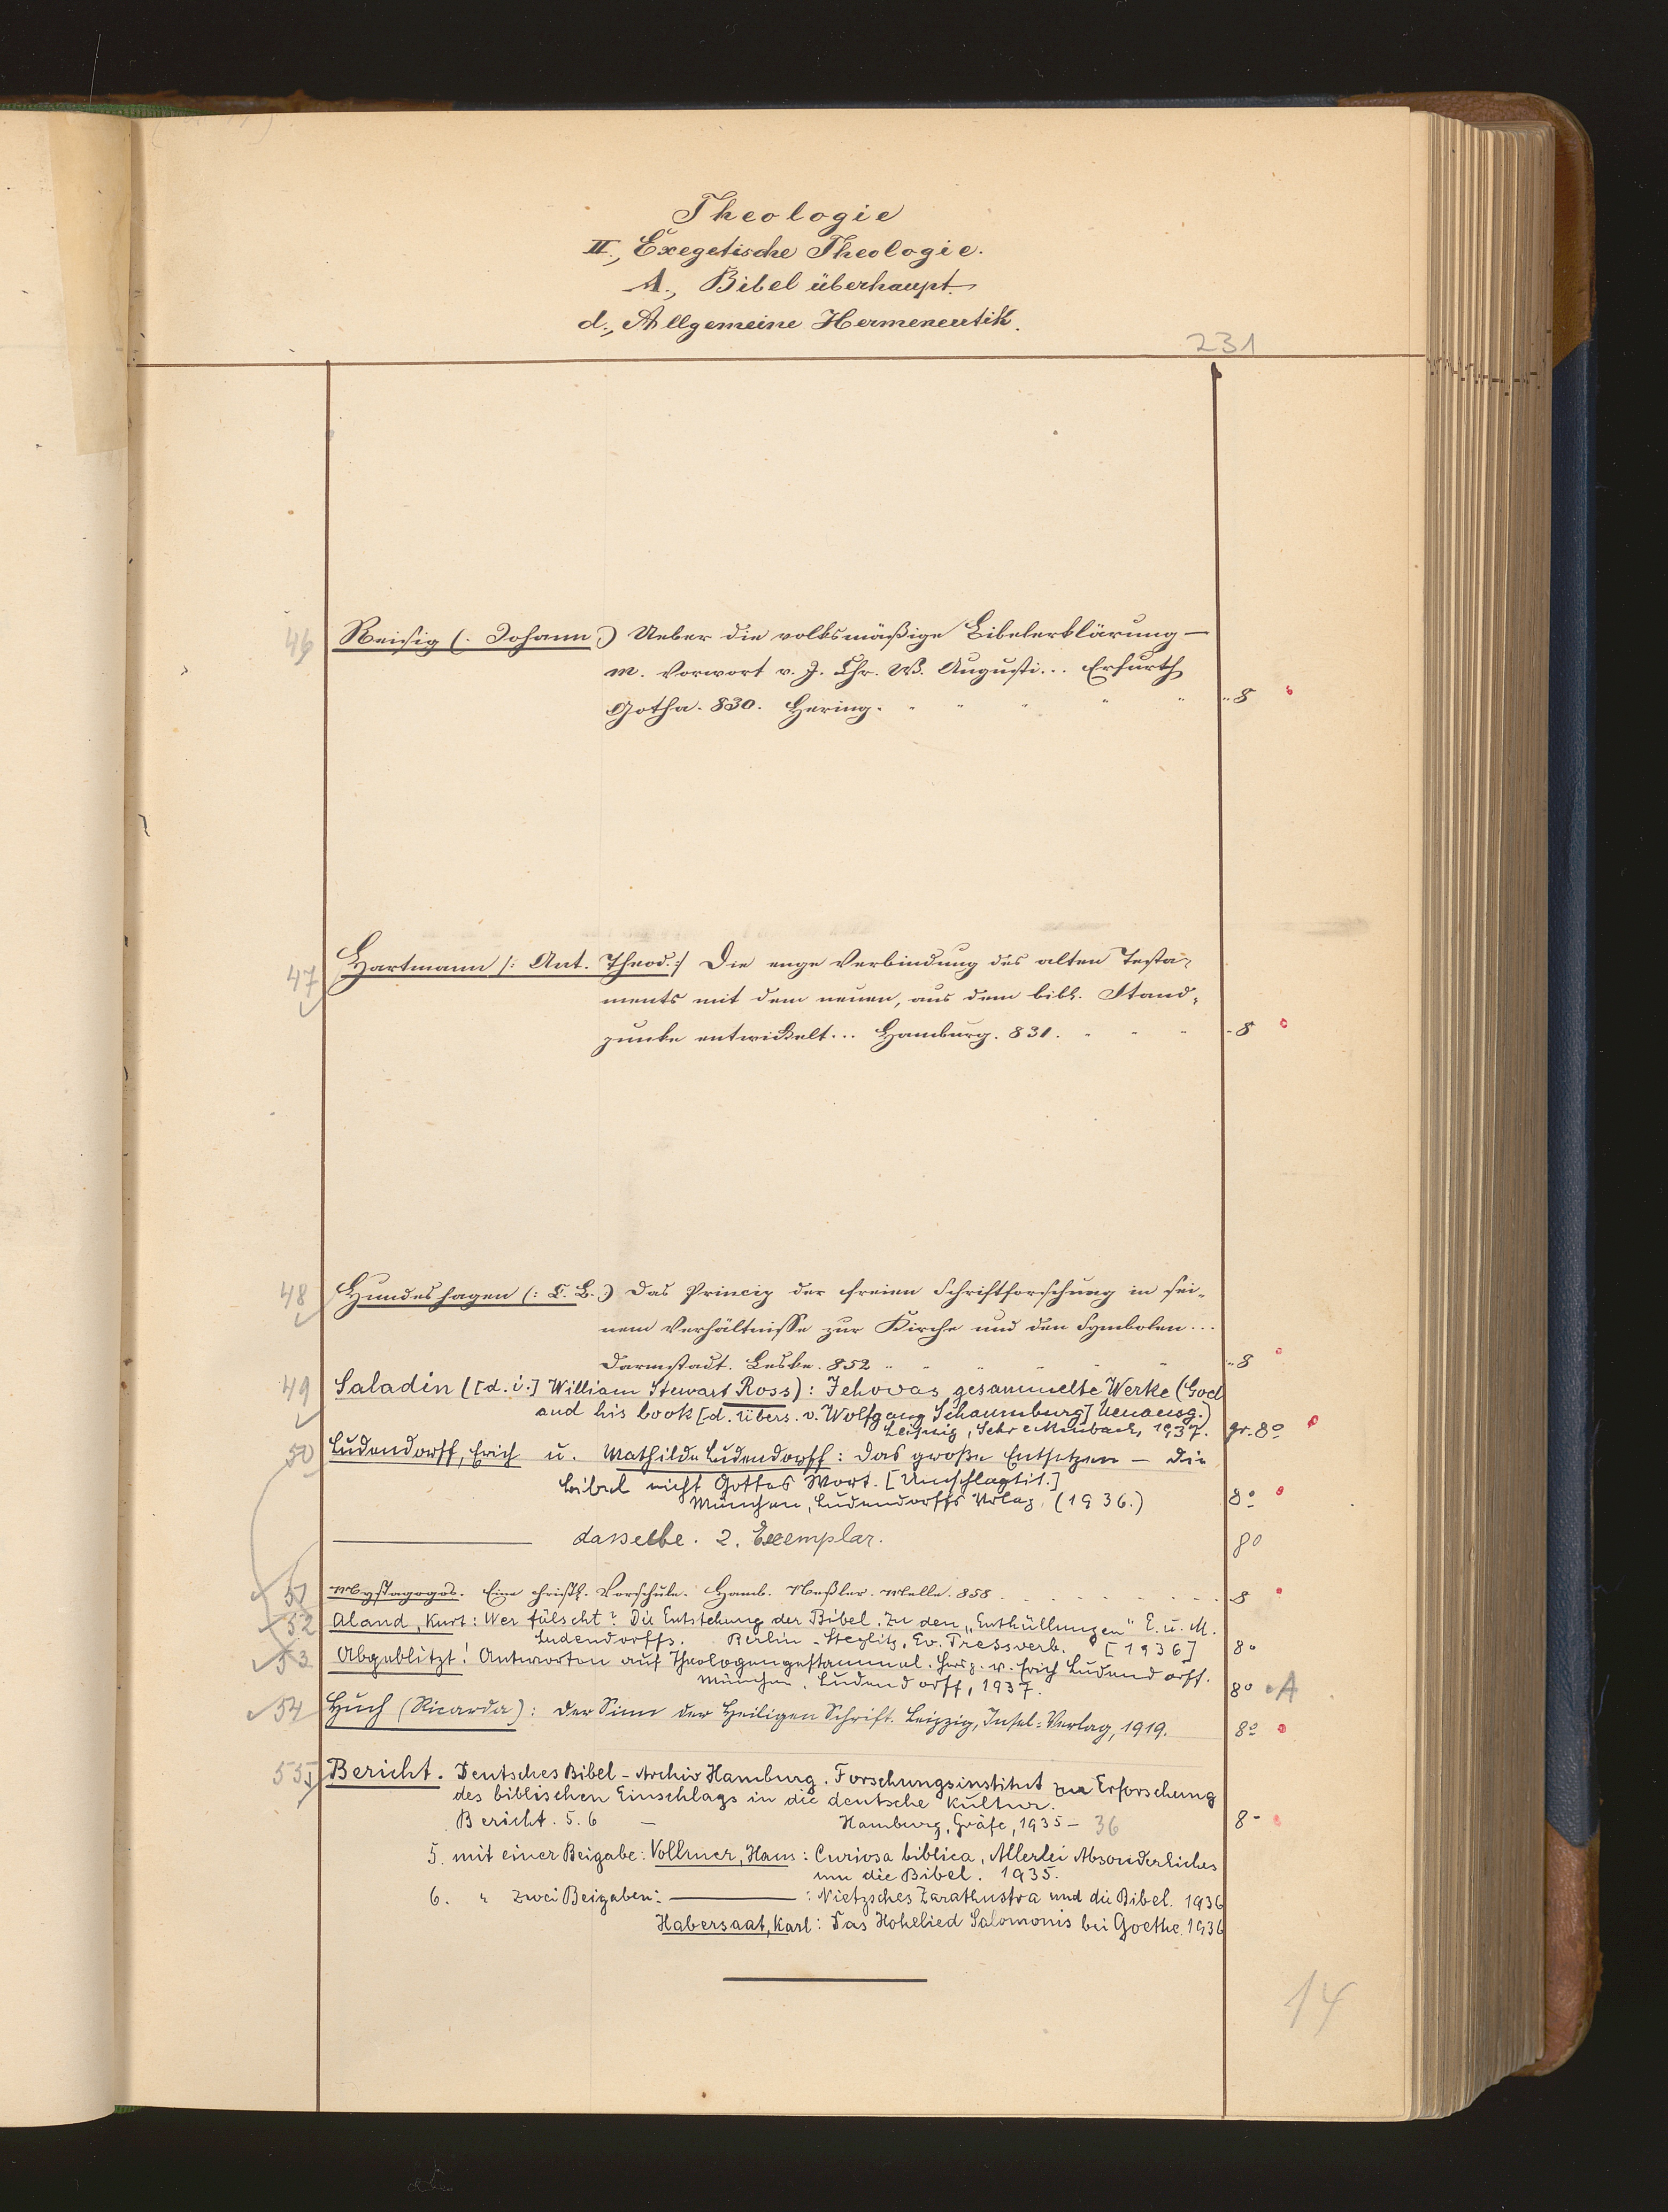 Theologie
II., Exegetische Theologie.
A., Bibel überhaupt.
d., Allgemeine Hermeneutik.
231
46 Reisig (: Johann :) Ueber die volksmäßige Bibelerklärung —
m. Vorwort v. J. Chr. W. Augusti... Erfurth
Gotha. 830. Hering. " " " " " " 8
47 Hartmann /: Ant. Theod. :/ Die enge Verbindung des alten Testa-
ments mit dem neuen, aus dem bibl. Stand-
punkte entwickelt... Hamburg. 831. " " " " 8
48 Hundeshagen (: C. B. :) Das Princip der freien Schriftforschung in sei-
nem Verhältnisse zur Kirche und den Symbolen...
Darmstadt. Leske. 852 " " " " " " " 8
49 Saladin ([d. i.] William Stewart Ross): Jehovas gesammelte Werke (God
and his book [d. Übers. v. Wolfgang Schaumburg] Neuausg.)
Leipzig, Schreckenbach, 1937. gr. 8º
50 Ludendorff, Erich u. Mathilde Ludendorff: Das große Entsetzen — Die
Bibel nicht Gottes Wort. [Umschlagtit.]
München, Ludendorffs Verlag, (1936.) 8º
——— dasselbe. 2. Exemplar. 8º
51 Mystagogos. Eine christl. Vorschule. Hamb. Neßler. Melle. 858. . . . . . . . 8
52 Aland, Kurt: Wer fälscht? Die Entstehung der Bibel. Zu den „Enthüllungen" E. u. M.
Ludendorffs. Berlin-Steglitz, Ev. Pressverb. [1936] 8º
53 Abgeblitzt! Antworten auf Theologengestammel. Hersg. v. Erich Ludendorff.
München, Ludendorff, 1937. 8º A
54 Huch (Ricarda): Der Sinn der Heiligen Schrift. Leipzig, Insel-Verlag, 1919. 8º
55 Bericht. Deutsches Bibel-Archiv Hamburg. Forschungsinstitut zur Erforschung
des biblischen Einschlags in die deutsche Kultur.
Bericht. 5. 6 — Hamburg, Gräfe, 1935 - 36 8-
5. mit einer Beigabe: Vollmer, Hans: Curiosa biblica, Allerlei Absonderliches
um die Bibel. 1935.
6. " zwei Beigaben: ——— : Nietzsches Zarathustra und die Bibel. 1936
Habersaat, Karl: Das Hohelied Salomonis bei Goethe. 1936
14